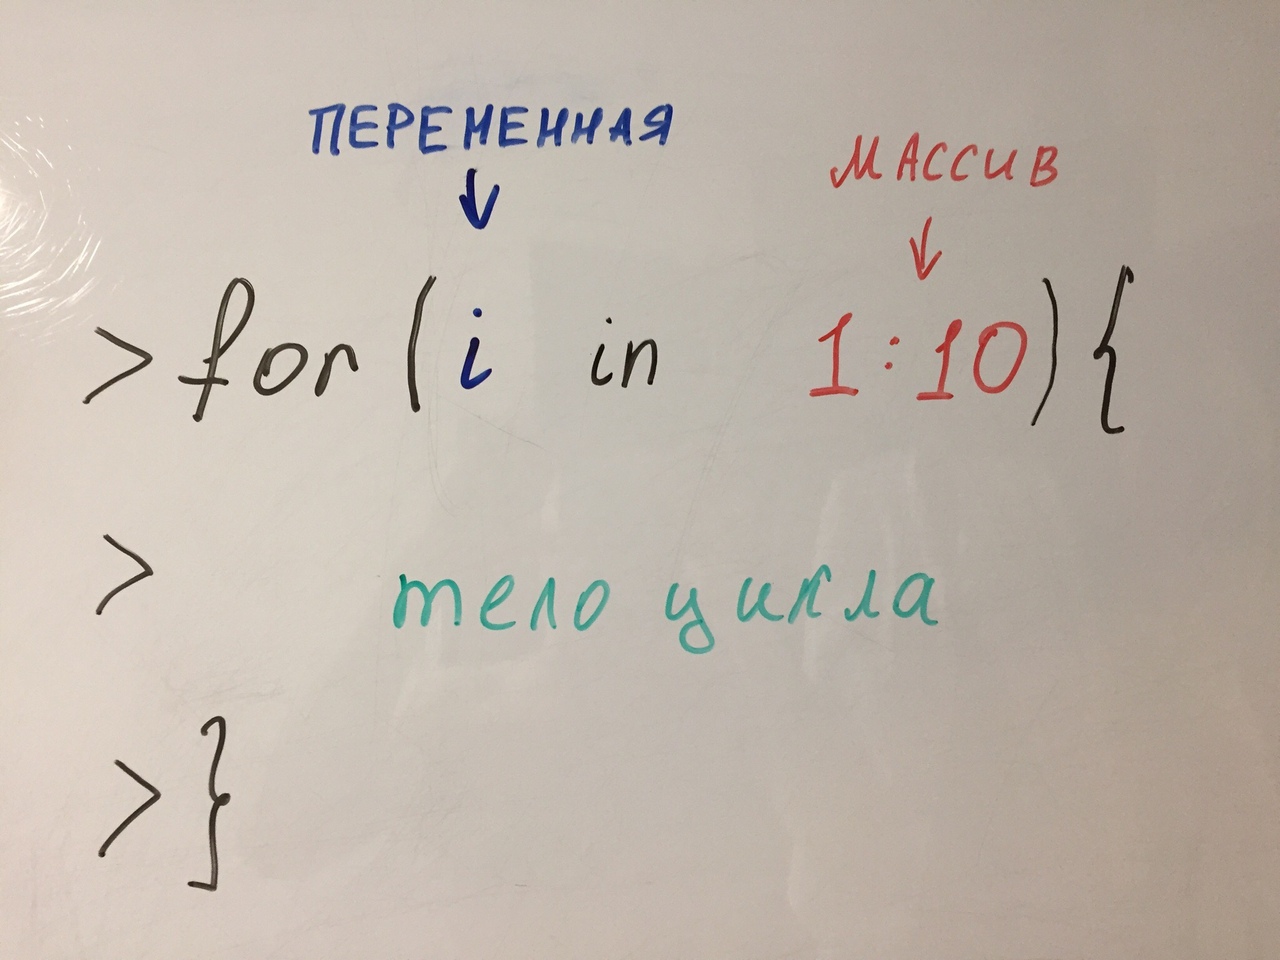 ПЕРЕМЕННАЯ
МАССИВ
> for (i in 1:10) {
> тело цикла
> }